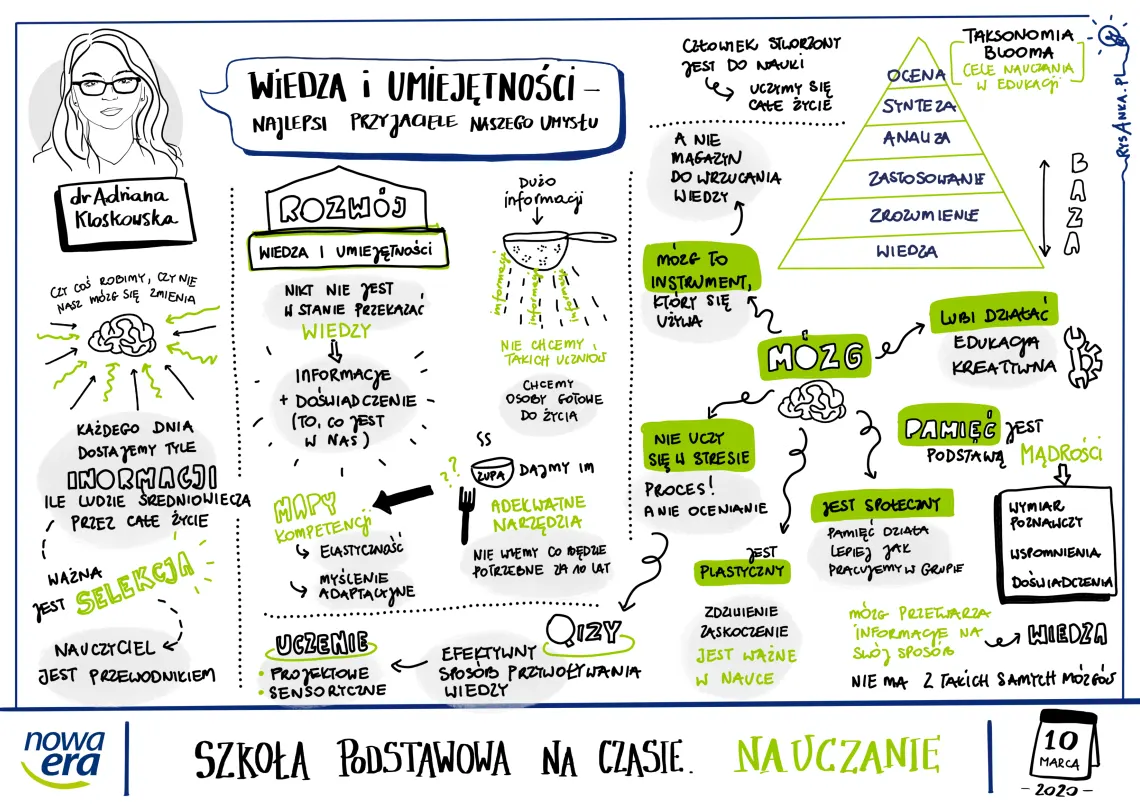 WIEDZA i UMIEJĘTNOŚCI –
NAJLEPSI PRZYJACIELE NASZEGO UMYSŁU
dr Adriana
Kloskowska
CZY COŚ ROBIMY, CZY NIE
NASZ MÓZG SIĘ ZMIENIA
KAŻDEGO DNIA
DOSTAJEMY TYLE
INORMACJI
ILE LUDZIE ŚREDNIOWIECZA
PRZEZ CAŁE ŻYCIE
WAŻNA
JEST SELEKCJA
NAUCZYCIEL
JEST PRZEWODNIKIEM
ROZWÓJ
WIEDZA I UMIEJĘTNOŚCI
NIKT NIE JEST
W STANIE PRZEKAZAĆ
WIEDZY
INFORMACJE
+ DOŚWIADCZENIE
(TO, CO JEST
W NAS)
MAPY
KOMPETENCJI
ELASTYCZNOŚĆ
MYŚLENIE
ADAPTACYJNE
DUŻO
informacji
informacji
informacji
informacji
NIE CHCEMY
TAKICH UCZNIÓW
CHCEMY
OSOBY GOTOWE
DO ŻYCIA
??
ZUPA
DAJMY IM
ADEKWATNE
NARZĘDZIA
NIE WIEMY CO BĘDZIE
POTRZEBNE ZA 10 LAT
UCZENIE
• PROJEKTOWE
• SENSORYCZNE
QIZY
EFEKTYWNY
SPOSÓB PRZYWOŁYWANIA
WIEDZY
CZŁOWIEK STWORZONY
JEST DO NAUKI
UCZYMY SIĘ
CAŁE ŻYCIE
A NIE
MAGAZYN
DO WRZUCANIA
WIEDZY
MÓZG TO
INSTRUMENT,
KTÓRY SIĘ
UŻYWA
TAKSONOMIA
BLOOMA
CELE NAUCZANIA
W EDUKACJI
OCENA
SYNTEZA
ANALIZA
ZASTOSOWANIE
ZROZUMIENIE
WIEDZA
BAZA
RYSANKA.PL
MÓZG
LUBI DZIAŁAĆ
EDUKACJA
KREATYWNA
NIE UCZY
SIĘ W STRESIE
PROCES!
A NIE OCENIANIE
JEST
PLASTYCZNY
ZDZIWIENIE
ZASKOCZENIE
JEST WAŻNE
W NAUCE
JEST SPOŁECZNY
PAMIĘĆ DZIAŁA
LEPIEJ JAK
PRACUJEMY W GRUPIE
PAMIĘĆ JEST
PODSTAWĄ MĄDROŚCI
WYMIAR
POZNAWCZY
WSPOMNIENIA
DOŚWIADCZENIA
MÓZG PRZETWARZA
INFORMACJE NA
SWÓJ SPOSÓB
WIEDZA
NIE MA 2 TAKICH SAMYCH MÓZGÓW
nowa
era
SZKOŁA PODSTAWOWA NA CZASIE. NAUCZANIE
10
MARCA
- 2020 -